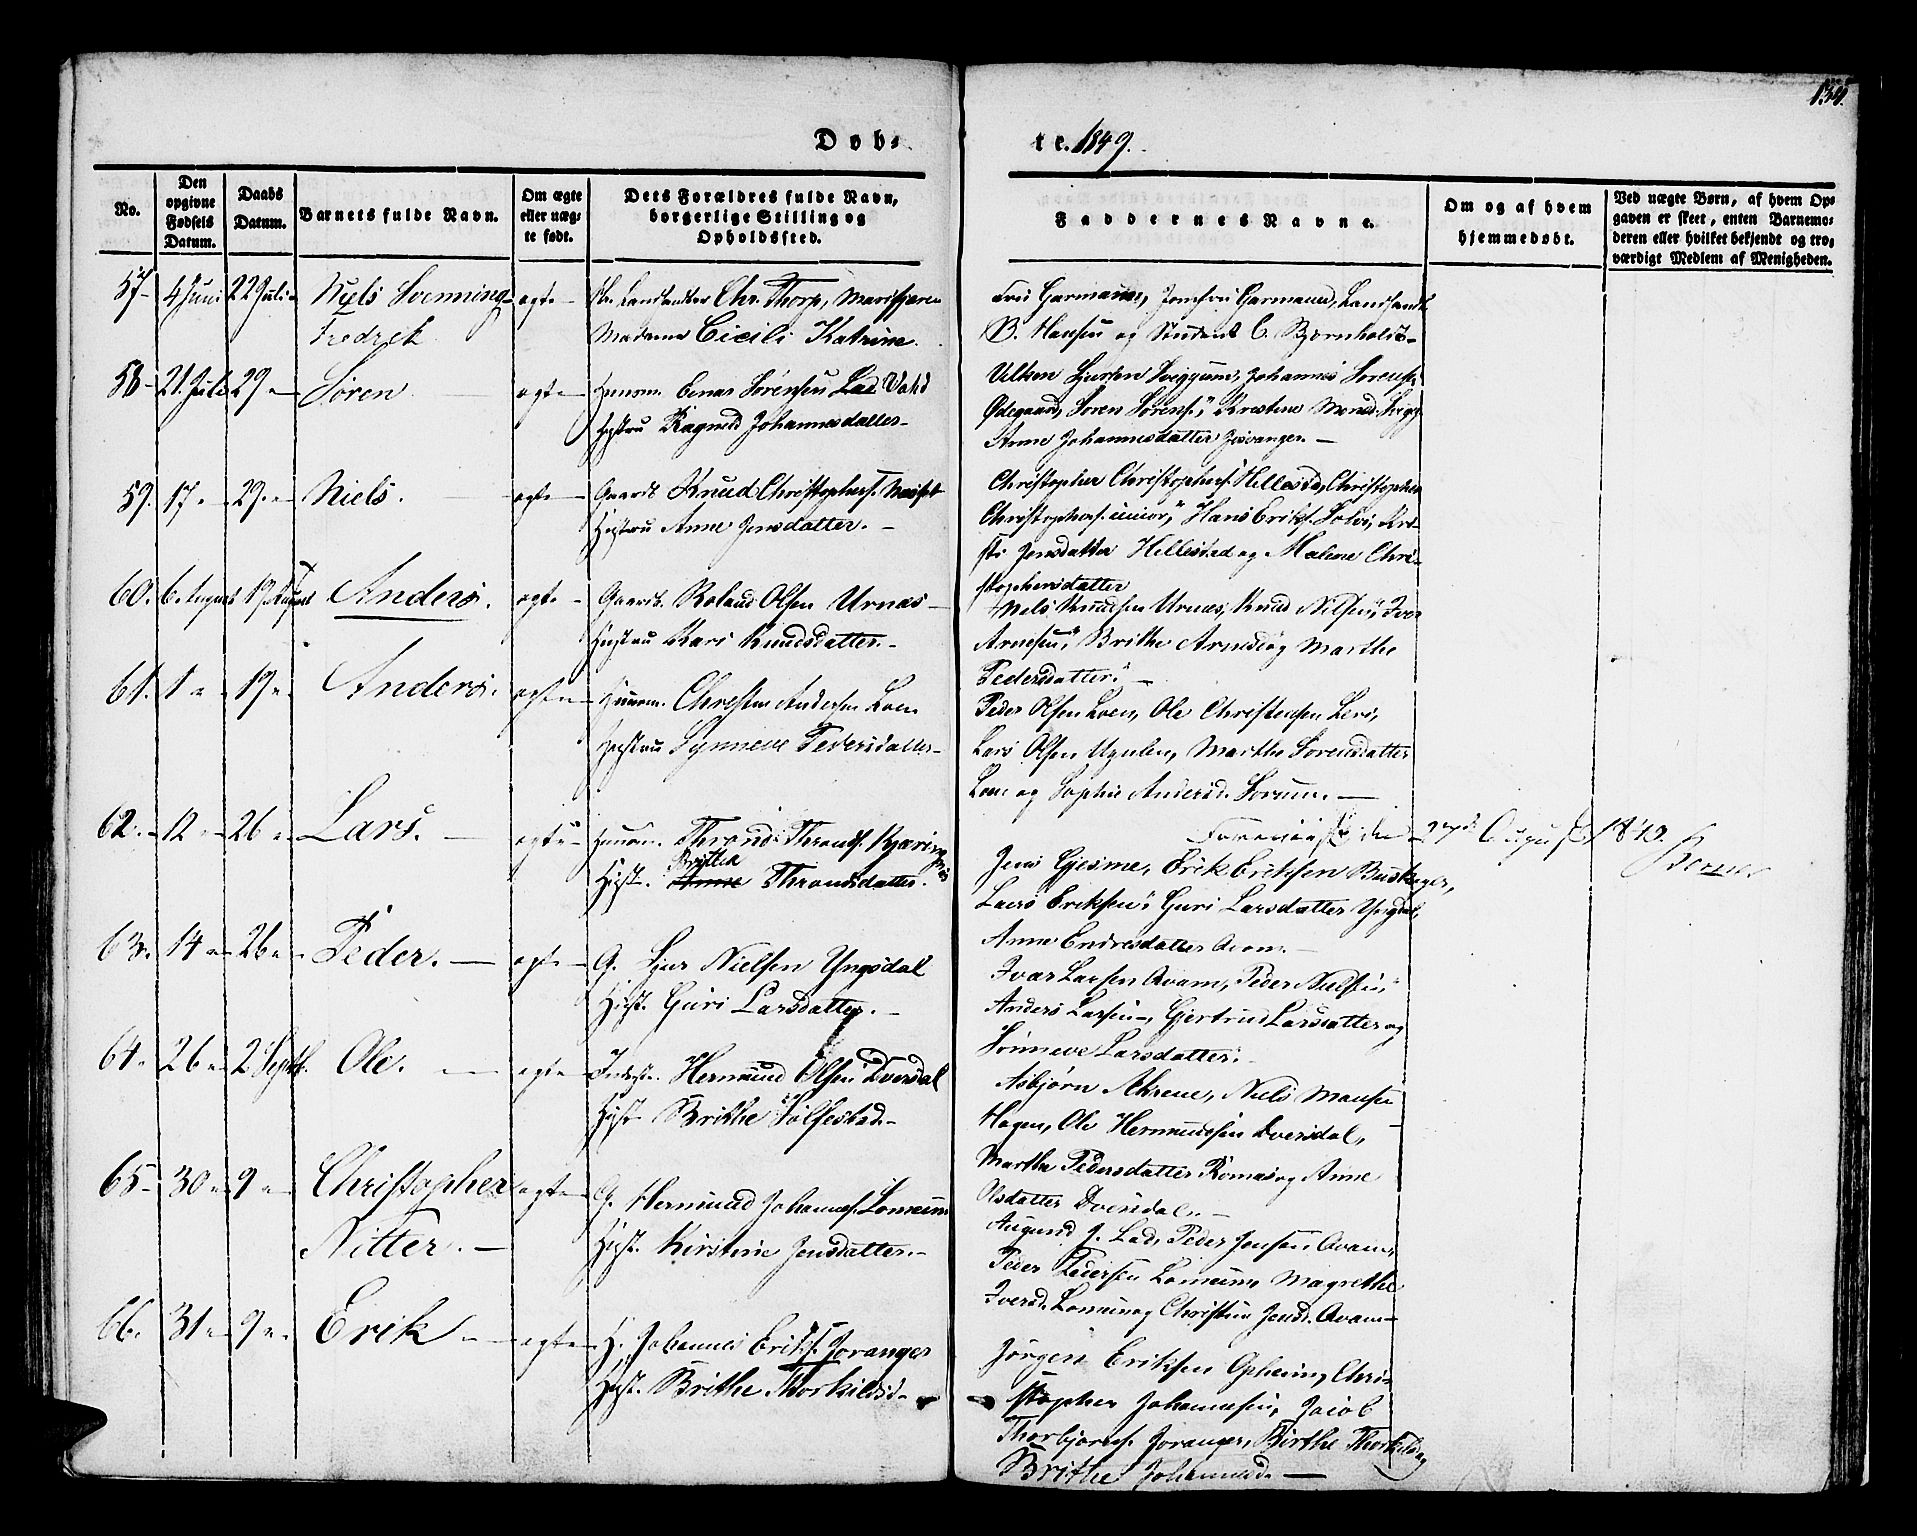 134.
Døb-
te. 1849.
No.
Den opgivne Fødsels Datum.
Daabs Datum.
Barnets fulde Navn.
Om ægte eller uægte født.
Dets Forældres fulde Navn, borgerlige Stilling og Opholdssted.
Faddernes Navne.
Om og af hvem hjemmedøbt.
Ved uægte Børn, af hvem Opgaven er skeet, enten Barnemoderen eller hvilket bekjendt og troværdigt Medlem af Menigheden.
57- 4 Juni 22 Juli Niels Svenning ægte Chr. Thorp, Marifjæren
Fredrik Madame Cicili Katrine.
Fru Garmann, Jomfru Garmann,
B. Hansen og Student C. Bjornholdt-
58- 21 Juli 29 Søren ægte Huusm. Sørensen Lad
Hustru Ragnild Johannesdatter-
Johannes Sorens.
Ødegaard, Soren Sørens. Kristine
Anne Johannesdatter Joranger. -
59. 17 29 Niels. ægte Gaardb. Knud Christophers.
Hustru Anne Jensdatter. -
Christopher Christophers. Hellestad, Christopher
Christophers. junior, Hans Eriks. Solvi, Kri-
sti Jensdatter Hellestad og Malene Chri-
stophersdatter
60. 6 August 19 August Anders. ægte - Gaardb. Roland Olsen Urnæs -
Hustru Kari Knudsdatter. -
Niels Knudsen Urnes, Knud Nilsen, Iver
Arnesen, Brithe Arnesd. og Marthe
Pedersdatter. -
61. 1 19 Anders. ægte Huusm. Christen Andersen Loen
Hustru Synneve Pedersdatter-
Peder Olsen Loen, Ole Christensen Leri,
Lars Olsen Marthe Sorensdatter
Loen og Sophie Andersd. Sorum. -
62. 12 26 Lars. ægte Huusm. Thrond Thronds. Kjærings
Hust. Anne Brithe Throndsdatter.
den 27de August 1849.
Jens Gjesme, Erik Eriksen
Lars Eriksen, Guri Larsdatter Yngsdal,
Anne Endresdatter Qvam. -
63. 14 26 Peder. - ægte - G. Sjur Nielsen Yngsdal
Hust. Guri Larsdatter. -
Ivar Larsen Qvam, Peder Nielsen,
Anders Larsen, Gjertrud Larsdatter og
Sønneve Larsdatter. -
64. 26 2 Septb. Ole. - ægte - Hermund Olsen Dversdal
Hust. Brithe Sølfestad. -
Asbjørn Ahrene, Niels Monsen
Hagen, Ole Hermundsen Dversdal,
Marthe Pedersdatter Romas og Anne
Olsdatter Dversdal. -
65- 30 9 Christopher ægte - G. Hermund Johannes. Lomeim
Nitter. - Hust. Kirstine Jensdatter. -
Augund J. Lad, Peder Jensen Qvam,
Peder Pedersen Lomeim, Magrethe
Iversd. Lomeim og Christine Jensd. Qvam -
66. 31 9 Erik ægte - H. Johannes Eriks. Joranger
Hust. Brithe Thorkildsd. -
Jørgen Eriksen Opheim, Chri-
stopher Johannesen, Jacob
Thorbjørns. Joranger, Birthe Thorkildsd. og
Brithe Johannesd. -